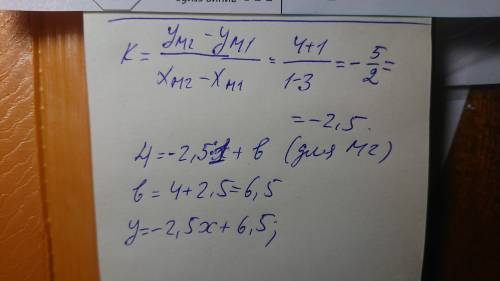 K = (y_M2 - y_M1) / (x_M2 - x_M1) = (4+1) / (1-3) = -5/2 =
= -2,5.
4 = -2,5·1 + в (для М2)
в = 4 + 2,5 = 6,5
y = -2,5x + 6,5;